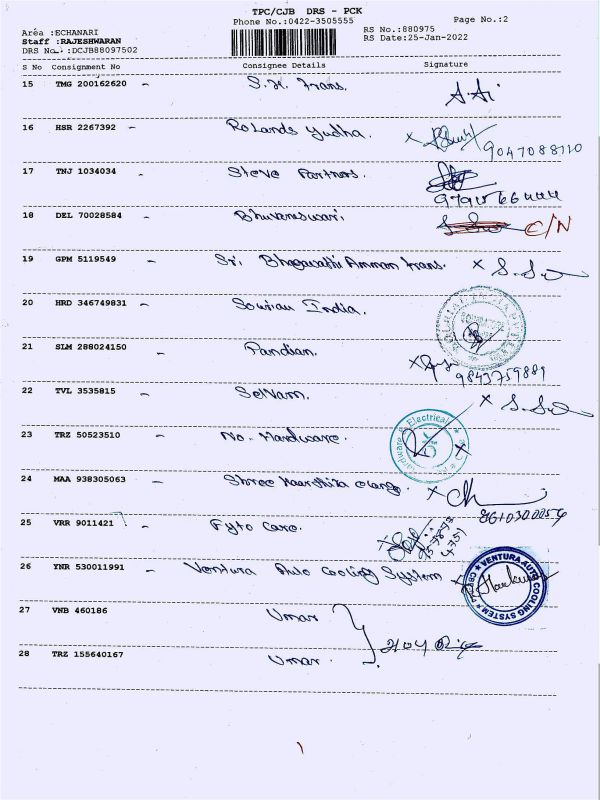 TPC/CJB DRS - PCK
Phone No.:0422-3505555 Page No.:2
Area :ECHANARI RS No.:880975
Staff :RAJESHWARAN RS Date:25-Jan-2022
DRS No. :DCJB88097502
S No Consignment No Consignee Details Signature
15 TMG 200162620 - S.K. Trans.
16 HSR 2267392 - Rolands Yudha. X
9047088110
17 TNJ 1034034 - Steve Partners.
18 DEL 70028584 - Bhuvaneswari. C/N
19 GPM 5119549 - Sri Bhagavathi Amman Trans. X
20 HRD 346749831 - Souriau India.
21 SLM 288024150 - Pandian. X
9843759889
22 TVL 3535815 - Selvam. X
23 TRZ 50523510 - No. Hardware. Electrical
24 MAA 938305063 - Shree X
25 VRR 9011421 - Fyto Care. X
26 YNR 530011991 - Ventura Auto Cooling System X VENTURA AUTO COOLING SYSTEM
27 VNB 460186 Umar
28 TRZ 155640167 Umar.